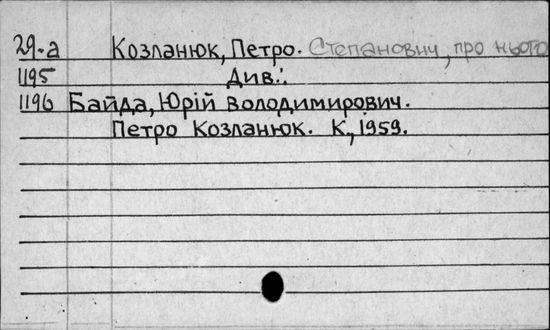 29-а Козланюк, Петро. Степанович, про нього
1195 Див.:
1196 Байда, Юрій Володимирович.
Петро Козланюк. К., 1959.